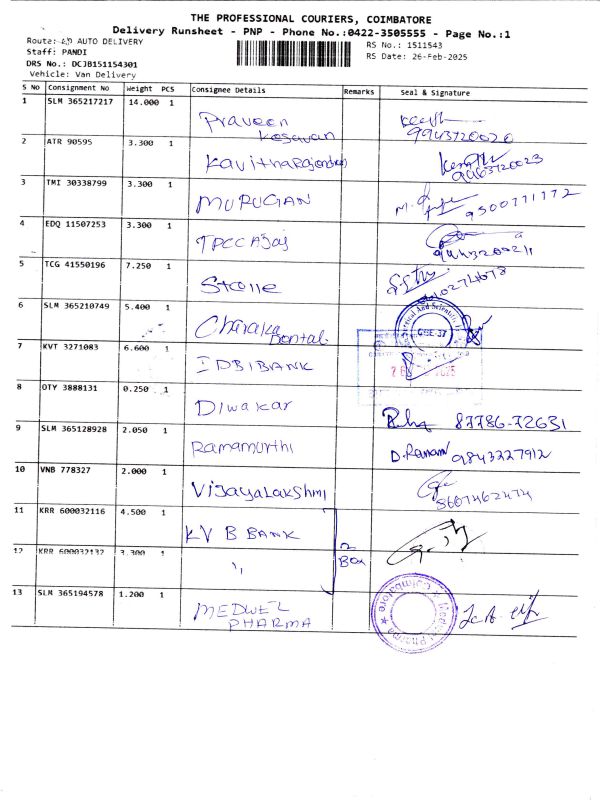 THE PROFESSIONAL COURIERS, COIMBATORE
Delivery Runsheet - PNP - Phone No.:0422-3505555 - Page No.:1
Route: AUTO DELIVERY
RS No.: 1511543
Staff: PANDI
RS Date: 26-Feb-2025
DRS No.: DCJB151154301
Vehicle: Van Delivery
S No Consignment No Weight PCS Consignee Details Remarks Seal & Signature
1 SLM 365217217 14.000 1 Praveen Kesavan 9943720020
2 ATR 90595 3.300 1 Kavitha Rajendran 9963720023
3 TMI 30338799 3.300 1 MURUGAN 9500771172
4 EDQ 11507253 3.300 1 TPCC Ajaj
5 TCG 41550196 7.250 1
6 SLM 365210749 5.400 1 Charaka Dental
7 KVT 3271083 6.600 1 IDBI BANK
8 OTY 3888131 0.250 1 Diwakar 87786-72631
9 SLM 365128928 2.050 1 Ramamurthi D.Ramam 9843227912
10 VNB 778327 2.000 1 Vijayalakshmi 8667462474
11 KRR 600032116 4.500 1 KV B BANK
12 KRR 600032132 3.300 1 " 2 Box
13 SLM 365194578 1.200 1 MEDWEL PHARMA